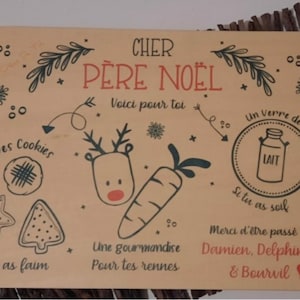 CHER
PÈRE NOËL
Voici pour toi
Des Cookies
Un Verre de
LAIT
Si tu as soif
Merci d'être passé
Une gourmandise
Damien, Delphin
as faim
Pour tes rennes
& Bourvil